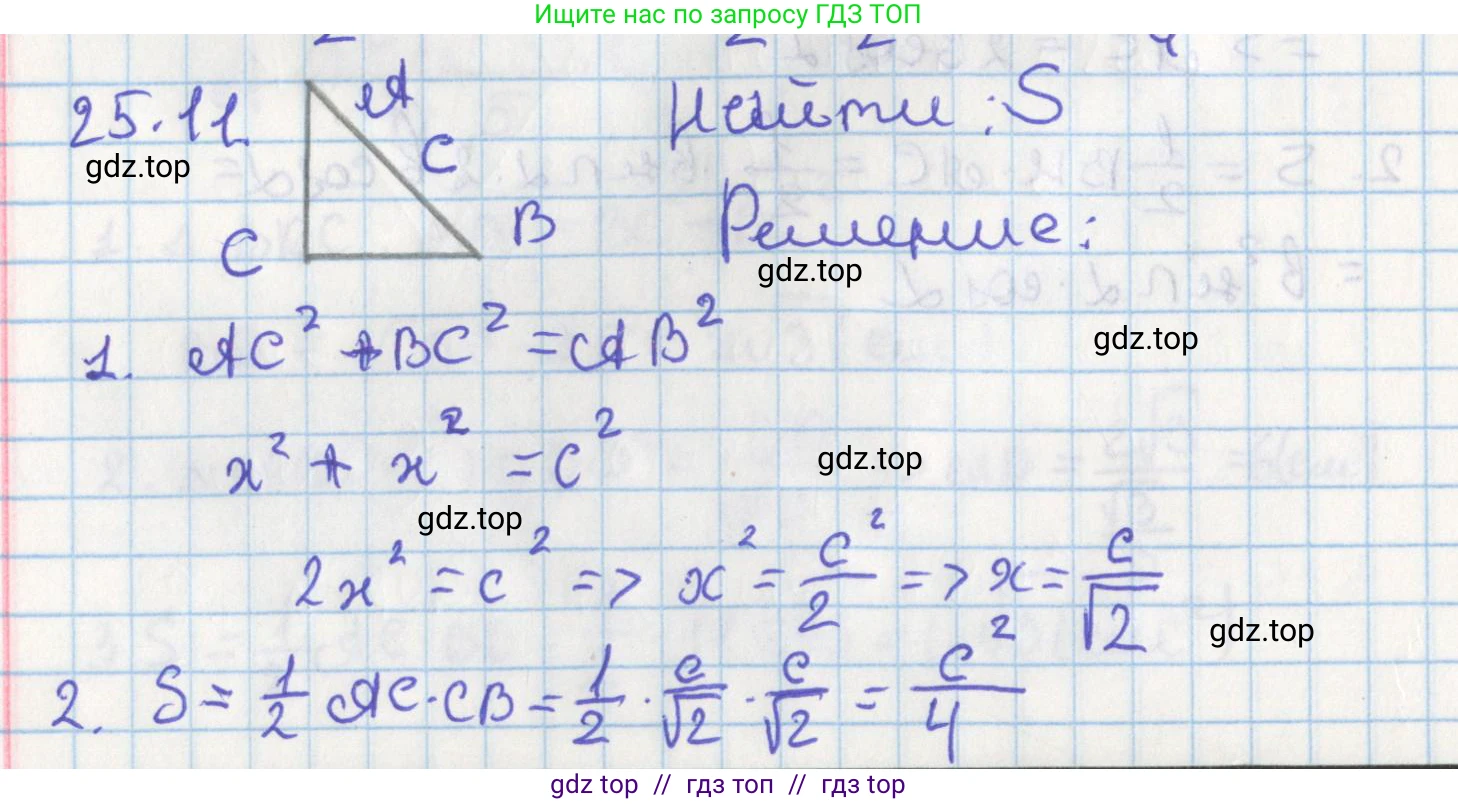 Ищите нас по запросу ГДЗ ТОП
25.11
A
C
C
B
Найти: S
gdz.top
Решение:
gdz.top
1. AC² + BC² = AB²
gdz.top
x² + x² = c²
gdz.top
gdz.top
2x² = c² => x² = c²/2 => x = c/√2
gdz.top
2. S = 1/2 AC · CB = 1/2 · c/√2 · c/√2 = c²/4
gdz top // гдз топ // гдз top